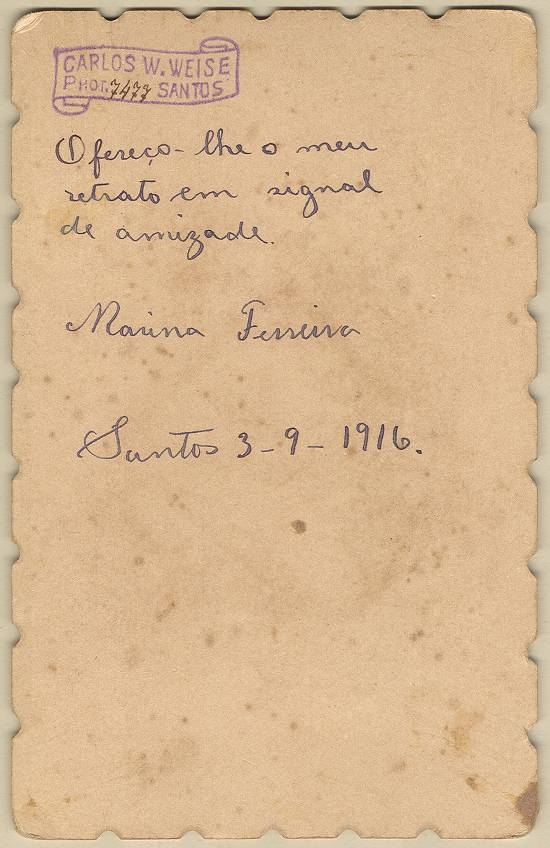 CARLOS W. WEISE
PHOT. 7477 SANTOS
Ofereço-lhe o meu
retrato em signal
de amizade.
Marina Ferreira
Santos 3-9-1916.